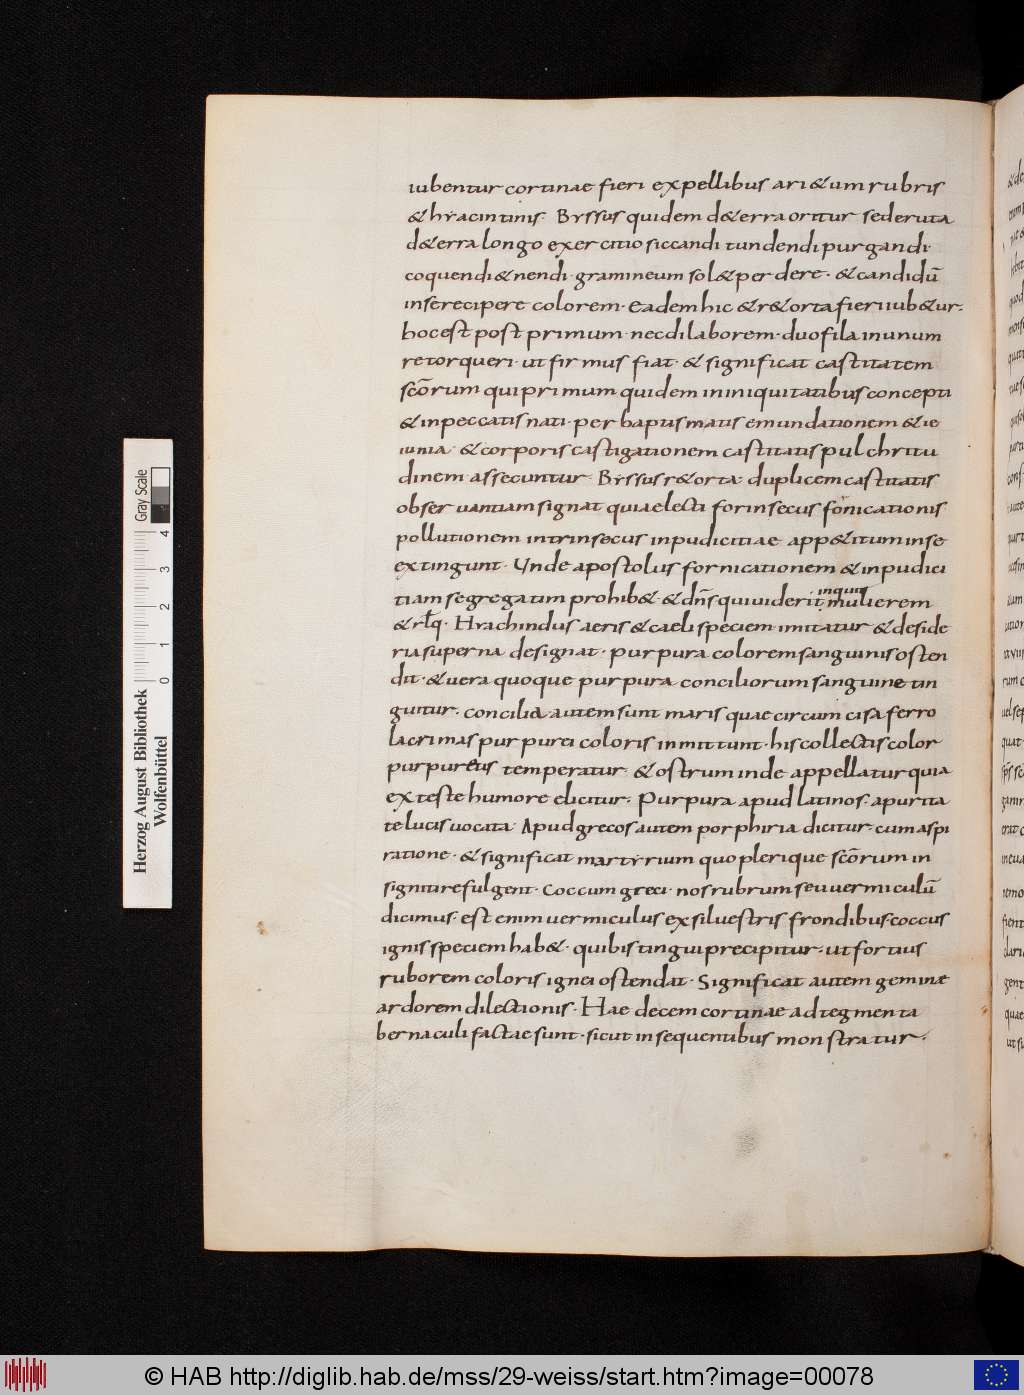 iubentur cortinae fieri expellibus ari&um rubris
& hẏacintinis· Bẏssus quidem d&erra oritur sederuta
d&erra longo exercitio siccandi tundendi purgandi·
coquendi & nendi· gramineum sol& perdere· & candidū
inserecipere colorem· Eadem hic & r&orta fieri iub&ur·
hocest post primum· necdi laborem· duo fila inunum
retorqueri· ut firmus fiat· & significat castitatem
scōrum qui primum quidem in iniquitatibus concepti
& inpeccatis nati· per baptismatis emundationem & ie
iunia· & corporis castigationem castitatis pulchritu
dinem assecuntur· Bẏssus r&orta· duplicem castitatis
obseruantiam signat quia electi forinsecus fornicationis
pollutionem intrinsecus inpudicitiae app&itum inse
extingunt· Unde apostolus fornicationem & inpudici
tiam segregatim prohib& · & dn̄s qui uiderit inquit mulierem
& rłq· Hẏachindus aeris & caeli speciem imitatur & deside
ria superna designat· purpura colorem sanguinis osten
dit· & uera quoque purpura conciliorum sanguine tin
guitur· concilia autem sunt maris quae circumcisa ferro
lacrimas purpurei coloris inmittunt· his collectis color
purpureus temperatur· & ostrum inde appellatur quia
ex teste humore elicitur· Purpura apud latinos· apurita
te lucis uocita· Apud grecos autem porphiria dicitur· cum aspi
ratione· & significat martẏrium quo plerique scōrum in
signiti refulgent· coccum greci· nos rubrum seu uermiculū
dicimus· est enim uermiculus exsiluestris frondibus coccus
ignis speciem hab& · quibis tingui precipitur· ut fortius
ruborem coloris ignei ostendat· Significat autem gemine
ardorem dilectionis· Hae decem cortinae ad tegmen ta
bernaculi factae sunt· sicut insequentibus monstratur·
Herzog August Bibliothek
Wolfenbüttel
Gray Scale
0 1 2 3 4
© HAB http://diglib.hab.de/mss/29-weiss/start.htm?image=00078